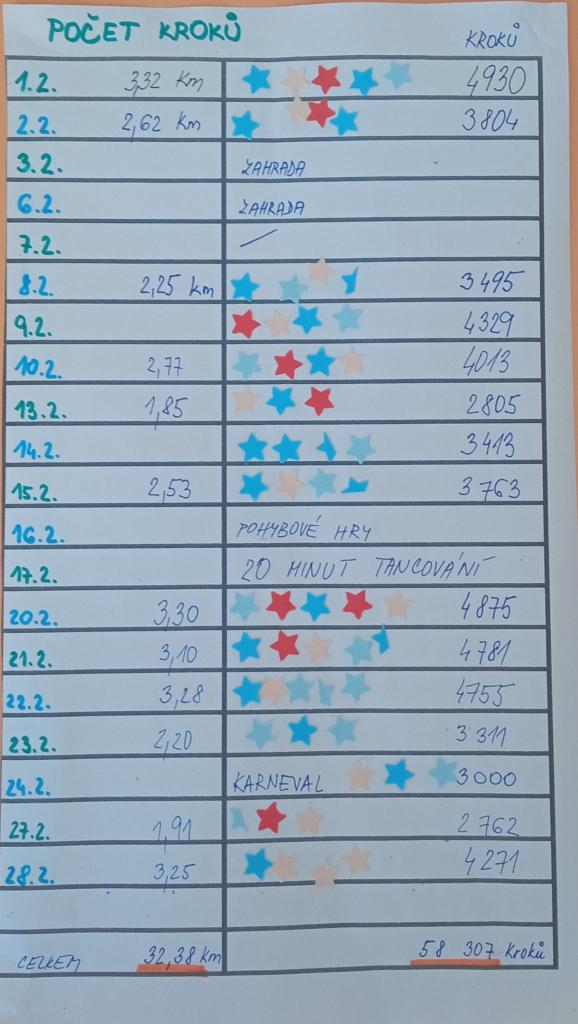 POČET KROKŮ KROKŮ
1.2. 3,32 Km 4930
2.2. 2,62 Km 3804
3.2. ZAHRADA
6.2. ZAHRADA
7.2.
8.2. 2,25 km 3495
9.2. 4329
10.2. 2,77 4013
13.2. 1,85 2805
14.2. 3413
15.2. 2,53 3763
16.2. POHYBOVÉ HRY
17.2. 20 MINUT TANCOVÁNÍ
20.2. 3,30 4875
21.2. 3,10 4781
22.2. 3,28 4755
23.2. 2,20 3311
24.2. KARNEVAL 3000
27.2. 1,91 2762
28.2. 3,25 4271
CELKEM 32,38 km 58 307 Kroků